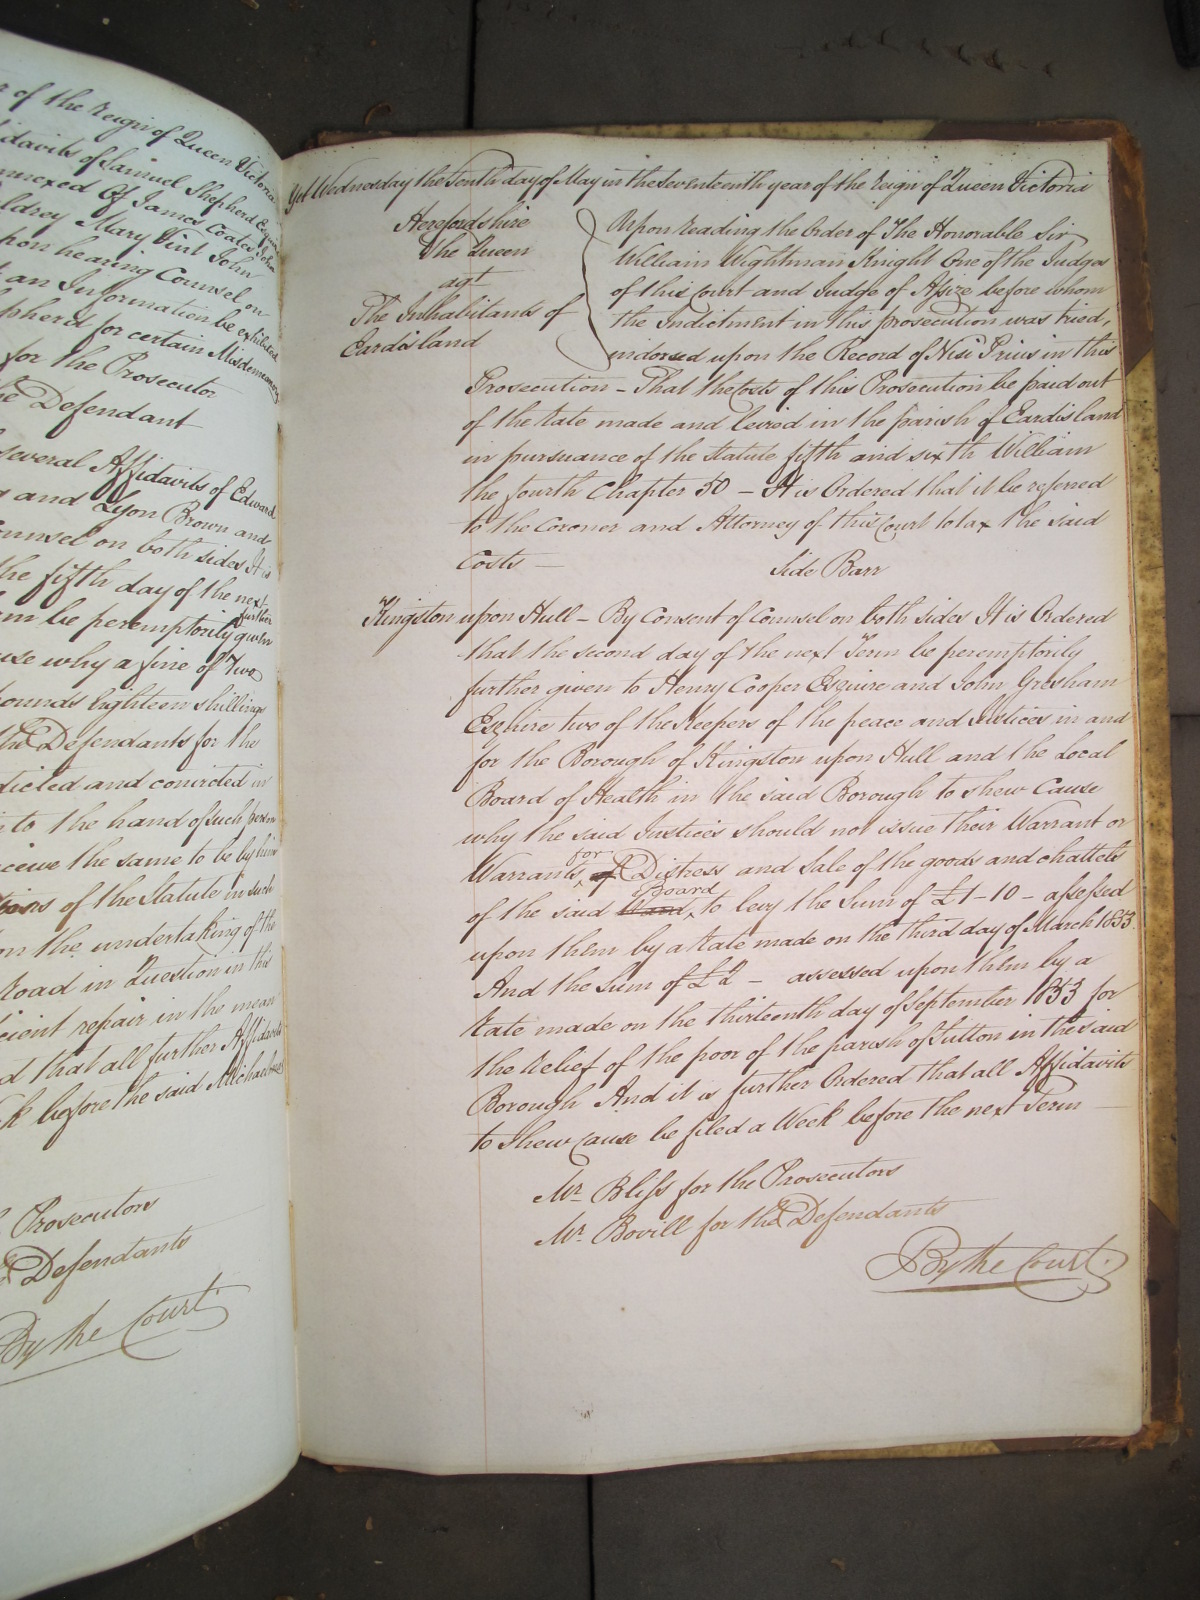 r of the reign of Queen Victoria
idavits of Samuel Shepherd Esquire
annexed Of James Coates John
ldrey Mary Vint John
pon hearing Counsel on
t an Information be exhibited
pherd for certain Misdemeanors
for the Prosecutor
he Defendant
Several Affidavits of Edward
g and Lyon Brown and
ounsel on both sides It is
the fifth day of the next
further
rm be peremptorily given
use why a fine of Two
pounds Eighteen shillings
the Defendants for the
dicted and convicted in
into the hand of such person
ceive the same to be by him
sions of the Statute in such
on the undertaking of the
Road in Question in this
cient repair in the mean
d that all further Affidavits
k before the said Michaelmas
Prosecutors
e Defendants
By the Court
Yet Wednesday the Tenth day of May in the Seventeenth year of the reign of Queen Victoria
Herefordshire
The Queen
agt
The Inhabitants of
Eardisland
Upon reading the Order of The Honorable Sir
William Wightman Knight One of the Judges
of this Court and Judge of Assize before whom
the Indictment in this prosecution was tried,
indorsed upon the Record of Nisi Prius in this
Prosecution – That the Costs of this Prosecution be paid out
of the rate made and levied in the parish of Eardisland
in pursuance of the Statute fifth and sixth William
the fourth Chapter 50 – It is Ordered that it be referred
to the Coroner and Attorney of this Court to tax the said
Costs –
Side Barr
Kingston upon Hull – By Consent of Counsel on both sides It is Ordered
that the second day of the next Term be peremptorily
further given to Henry Cooper Esquire and John Gresham
Esquire two of the Keepers of the peace and Justices in and
for the Borough of Kingston upon Hull and the Local
Board of Health in the said Borough to shew Cause
why the said Justices should not issue their Warrant or
for
Warrants of Distress and Sale of the goods and chattels
Board
of the said Ward to levy the Sum of £1–10– assessed
upon them by a rate made on the third day of March 1853
And the Sum of £2 – assessed upon them by a
rate made on the thirteenth day of September 1853 for
the relief of the poor of the parish of Sutton in the said
Borough And it is further Ordered that all Affidavits
to shew cause be filed a Week before the next Term
Mr. Bliss for the Prosecutors
Mr. Bovill for the Defendants
By the Court